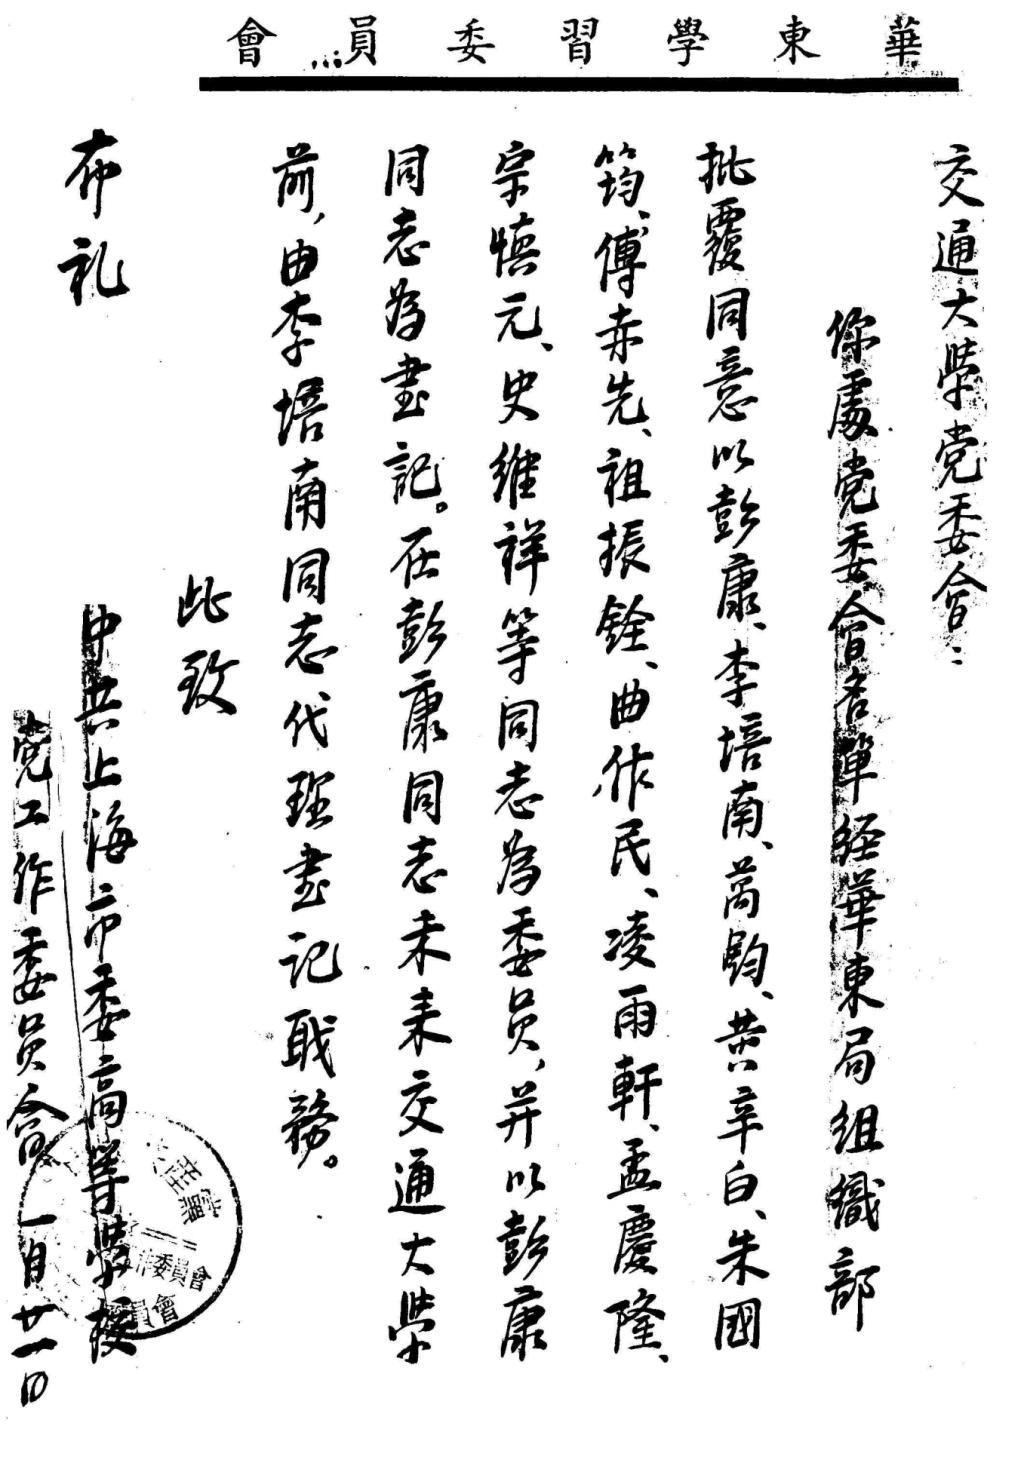 華東學習委員會
交通大學党委會:
你處党委會名單经華東局组織部
批覆同意以彭康、李培南、萬鈞、黄辛白、朱國
筠、傅赤先、祖振銓、曲作民、凌雨軒、孟慶隆、
宗慎元、史维祥等同志為委员、并以彭康
同志為書記。在彭康同志未来交通大學
前,由李培南同志代理書记职務。
此致
布礼
中共上海市委高等學校
党工作委員會 一月廿一日
產黨
作委員會
員會